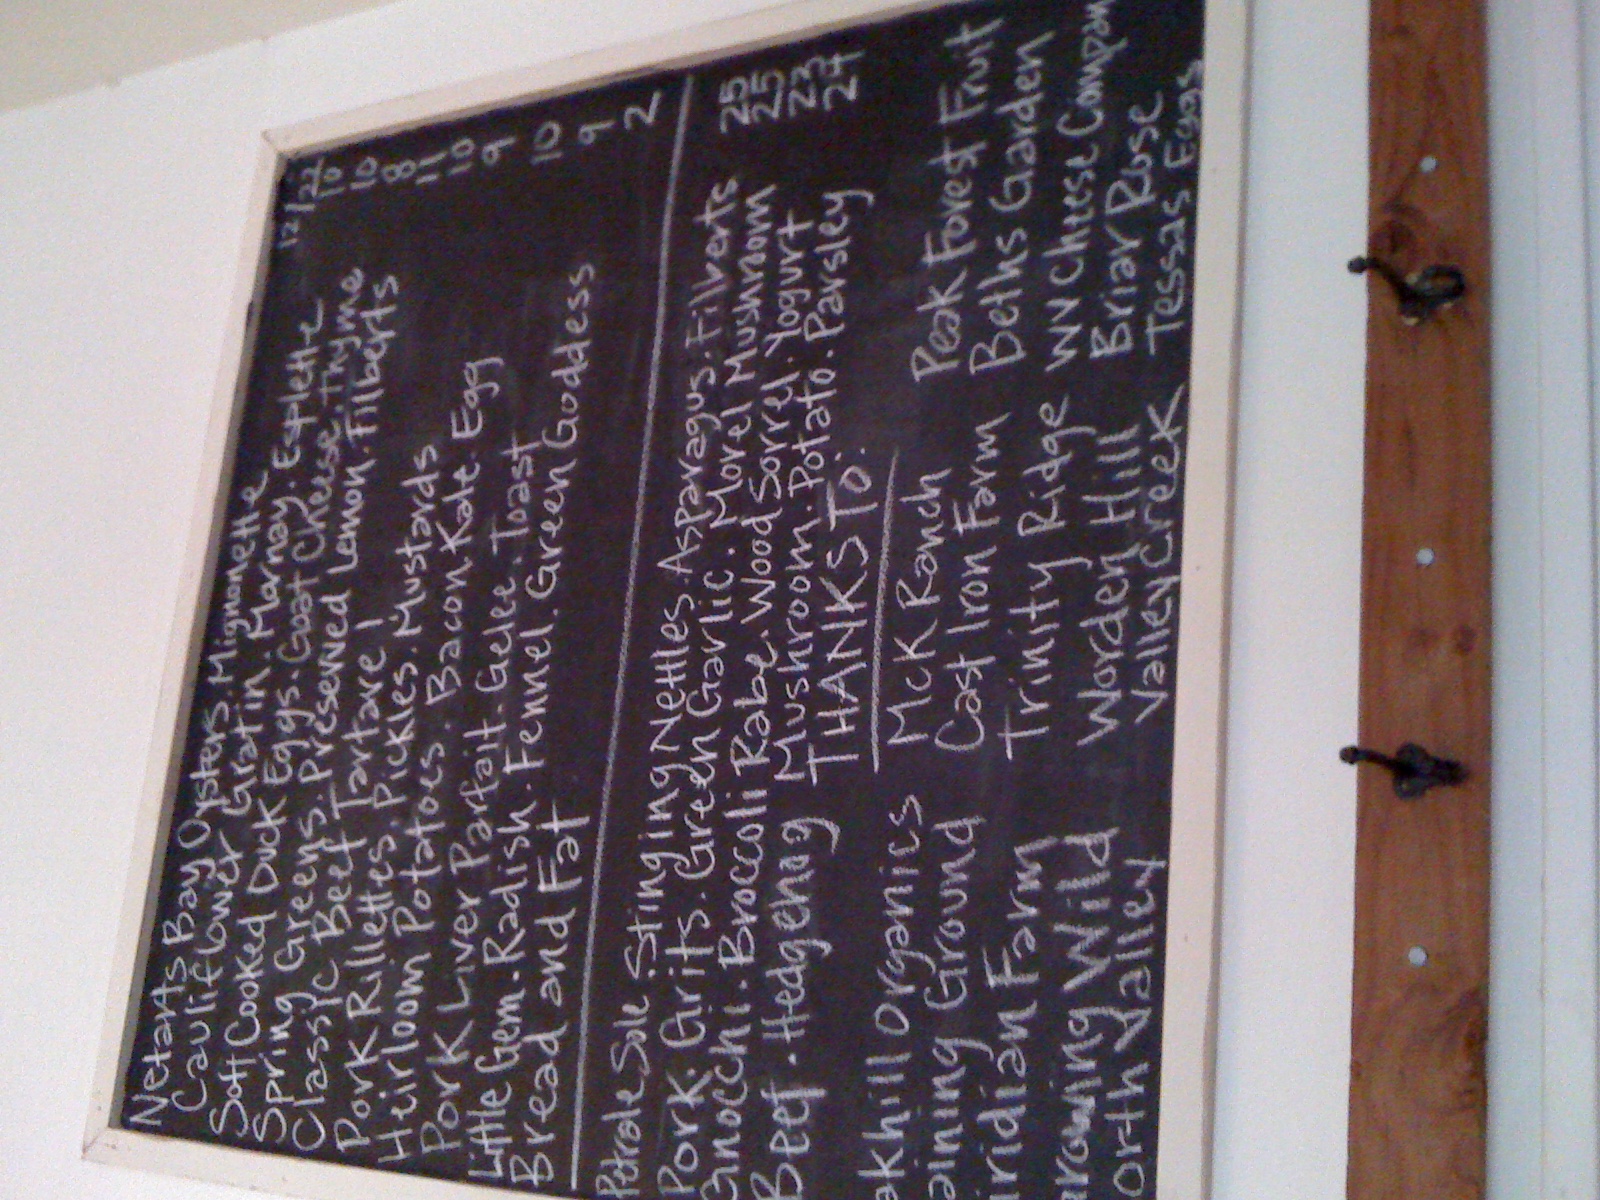 Netarts Bay Oysters. Mignonette 12/22
Cauliflower Gratin. Mornay. Esplette 10
Soft Cooked Duck Eggs. Goat Cheese. Thyme 10
Spring Greens. Preserved Lemon. Filberts 8
Classic Beef Tartare 11
Pork Rillettes. Pickles. Mustards 10
Heirloom Potatoes. Bacon Kale. Egg 9
Pork Liver Parfait. Gelee. Toast 10
Little Gem. Radish. Fennel. Green Goddess 9
Bread and Fat 2
Petrale Sole. Stinging Nettles. Asparagus. Filberts 25
Pork. Grits. Green Garlic. Morel Mushroom 25
Gnocchi. Broccoli Rabe. Wood Sorrel. Yogurt 23
Beef. Hedgehog Mushroom. Potato. Parsley 27
THANKS TO:
akhill Organics McK Ranch Peak Forest Fruit
aining Ground Cast Iron Farm Beths Garden
iridian Farm Trinity Ridge WV Cheese Compan
arowing Wild Worden Hill Briar Rose
orth Valley Valley Creek Tessas Eggs